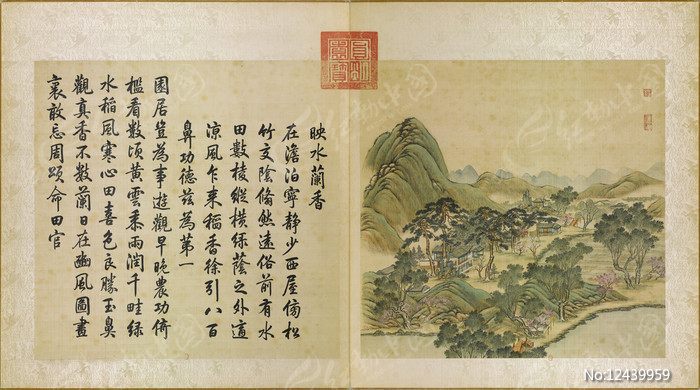 圓明園寶
映水蘭香
在澹泊寧靜少西屋傍松
竹交陰翛然遠俗前有水
田數棱縱橫綠蔭之外適
涼風乍來稻香徐引八百
鼻功德茲為第一
園居豈為事遊觀早晚農功倚
檻看數頃黃雲黍雨潤千畦綠
水稻風寒心田喜色良勝玉鼻
觀真香不數蘭日在豳風圖畫
裏敢忘周頌命田官
No:12439959